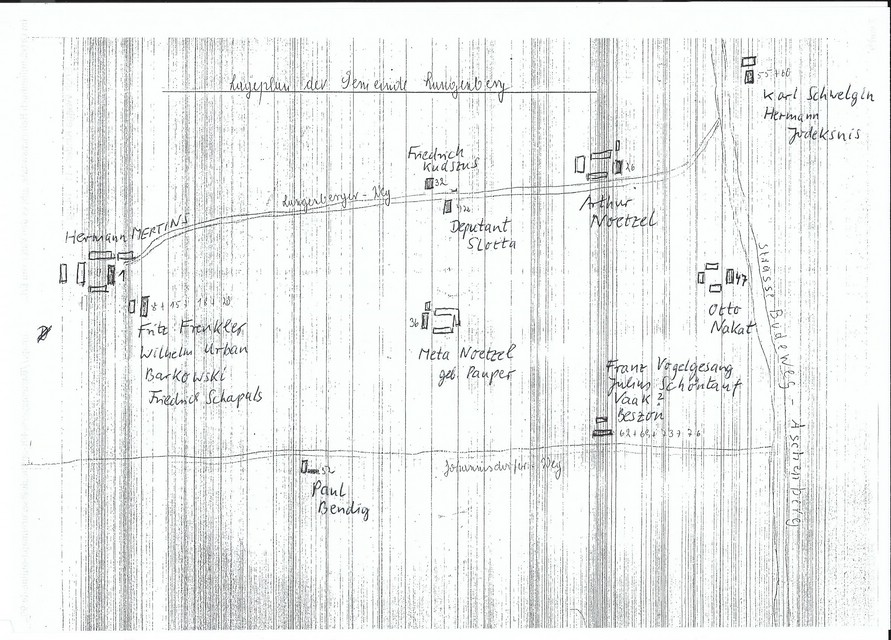 Lageplan der Gemeinde Lungenberg
55+60
Karl Schwelgin
Hermann
Judeksnis
Friedrich
Kudszus
32
26
Lungenberger-Weg
Arthur
Noetzel
Deputant
Slotta
Hermann MERTINS
1
Fritz Frenkler
Wilhelm Urban
Barkowski
Friedrich Schapals
36
Meta Noetzel
geb. Pauper
47
Otto
Nakat
Strasse Budeweg - Aschenberg
Franz Vogelgesang
Julius Schöntauf
Vaak?
Beszon
Johannisdorfer-Weg
52
Paul
Bendig